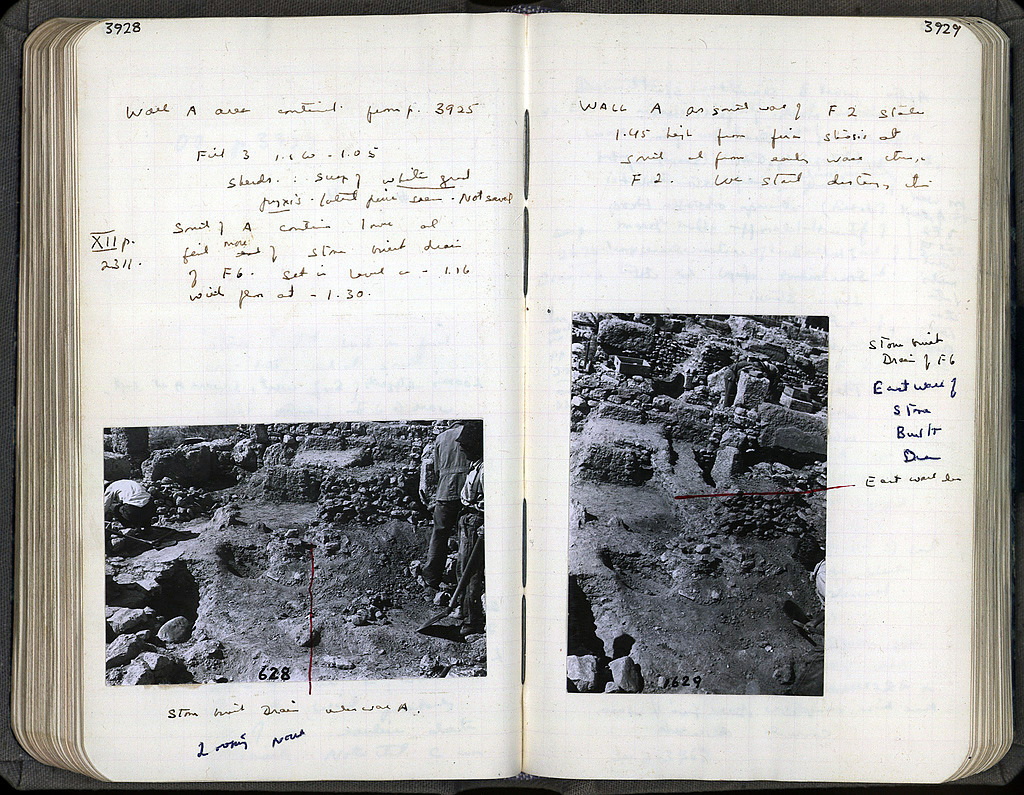 3928
Wall A area continued from p. 3925
Fill 3 1.160 - 1.05
Sherds : Scrap of white grd
pyxis. latest piece seen. Not saved
XII p.
2311.
South of A continue lower and
find more of stone built drain
of F6. Set in level a - 1.16
with floor at - 1.30.
628
Stone built Drain under wall A.
Looking North
3929
WALL A as south wall of F2 stands
1.45 high from
south and from
F2. We start destroying this
1629
Stone built
Drain of F6
East wall of
Stone
Built
Drain
East wall